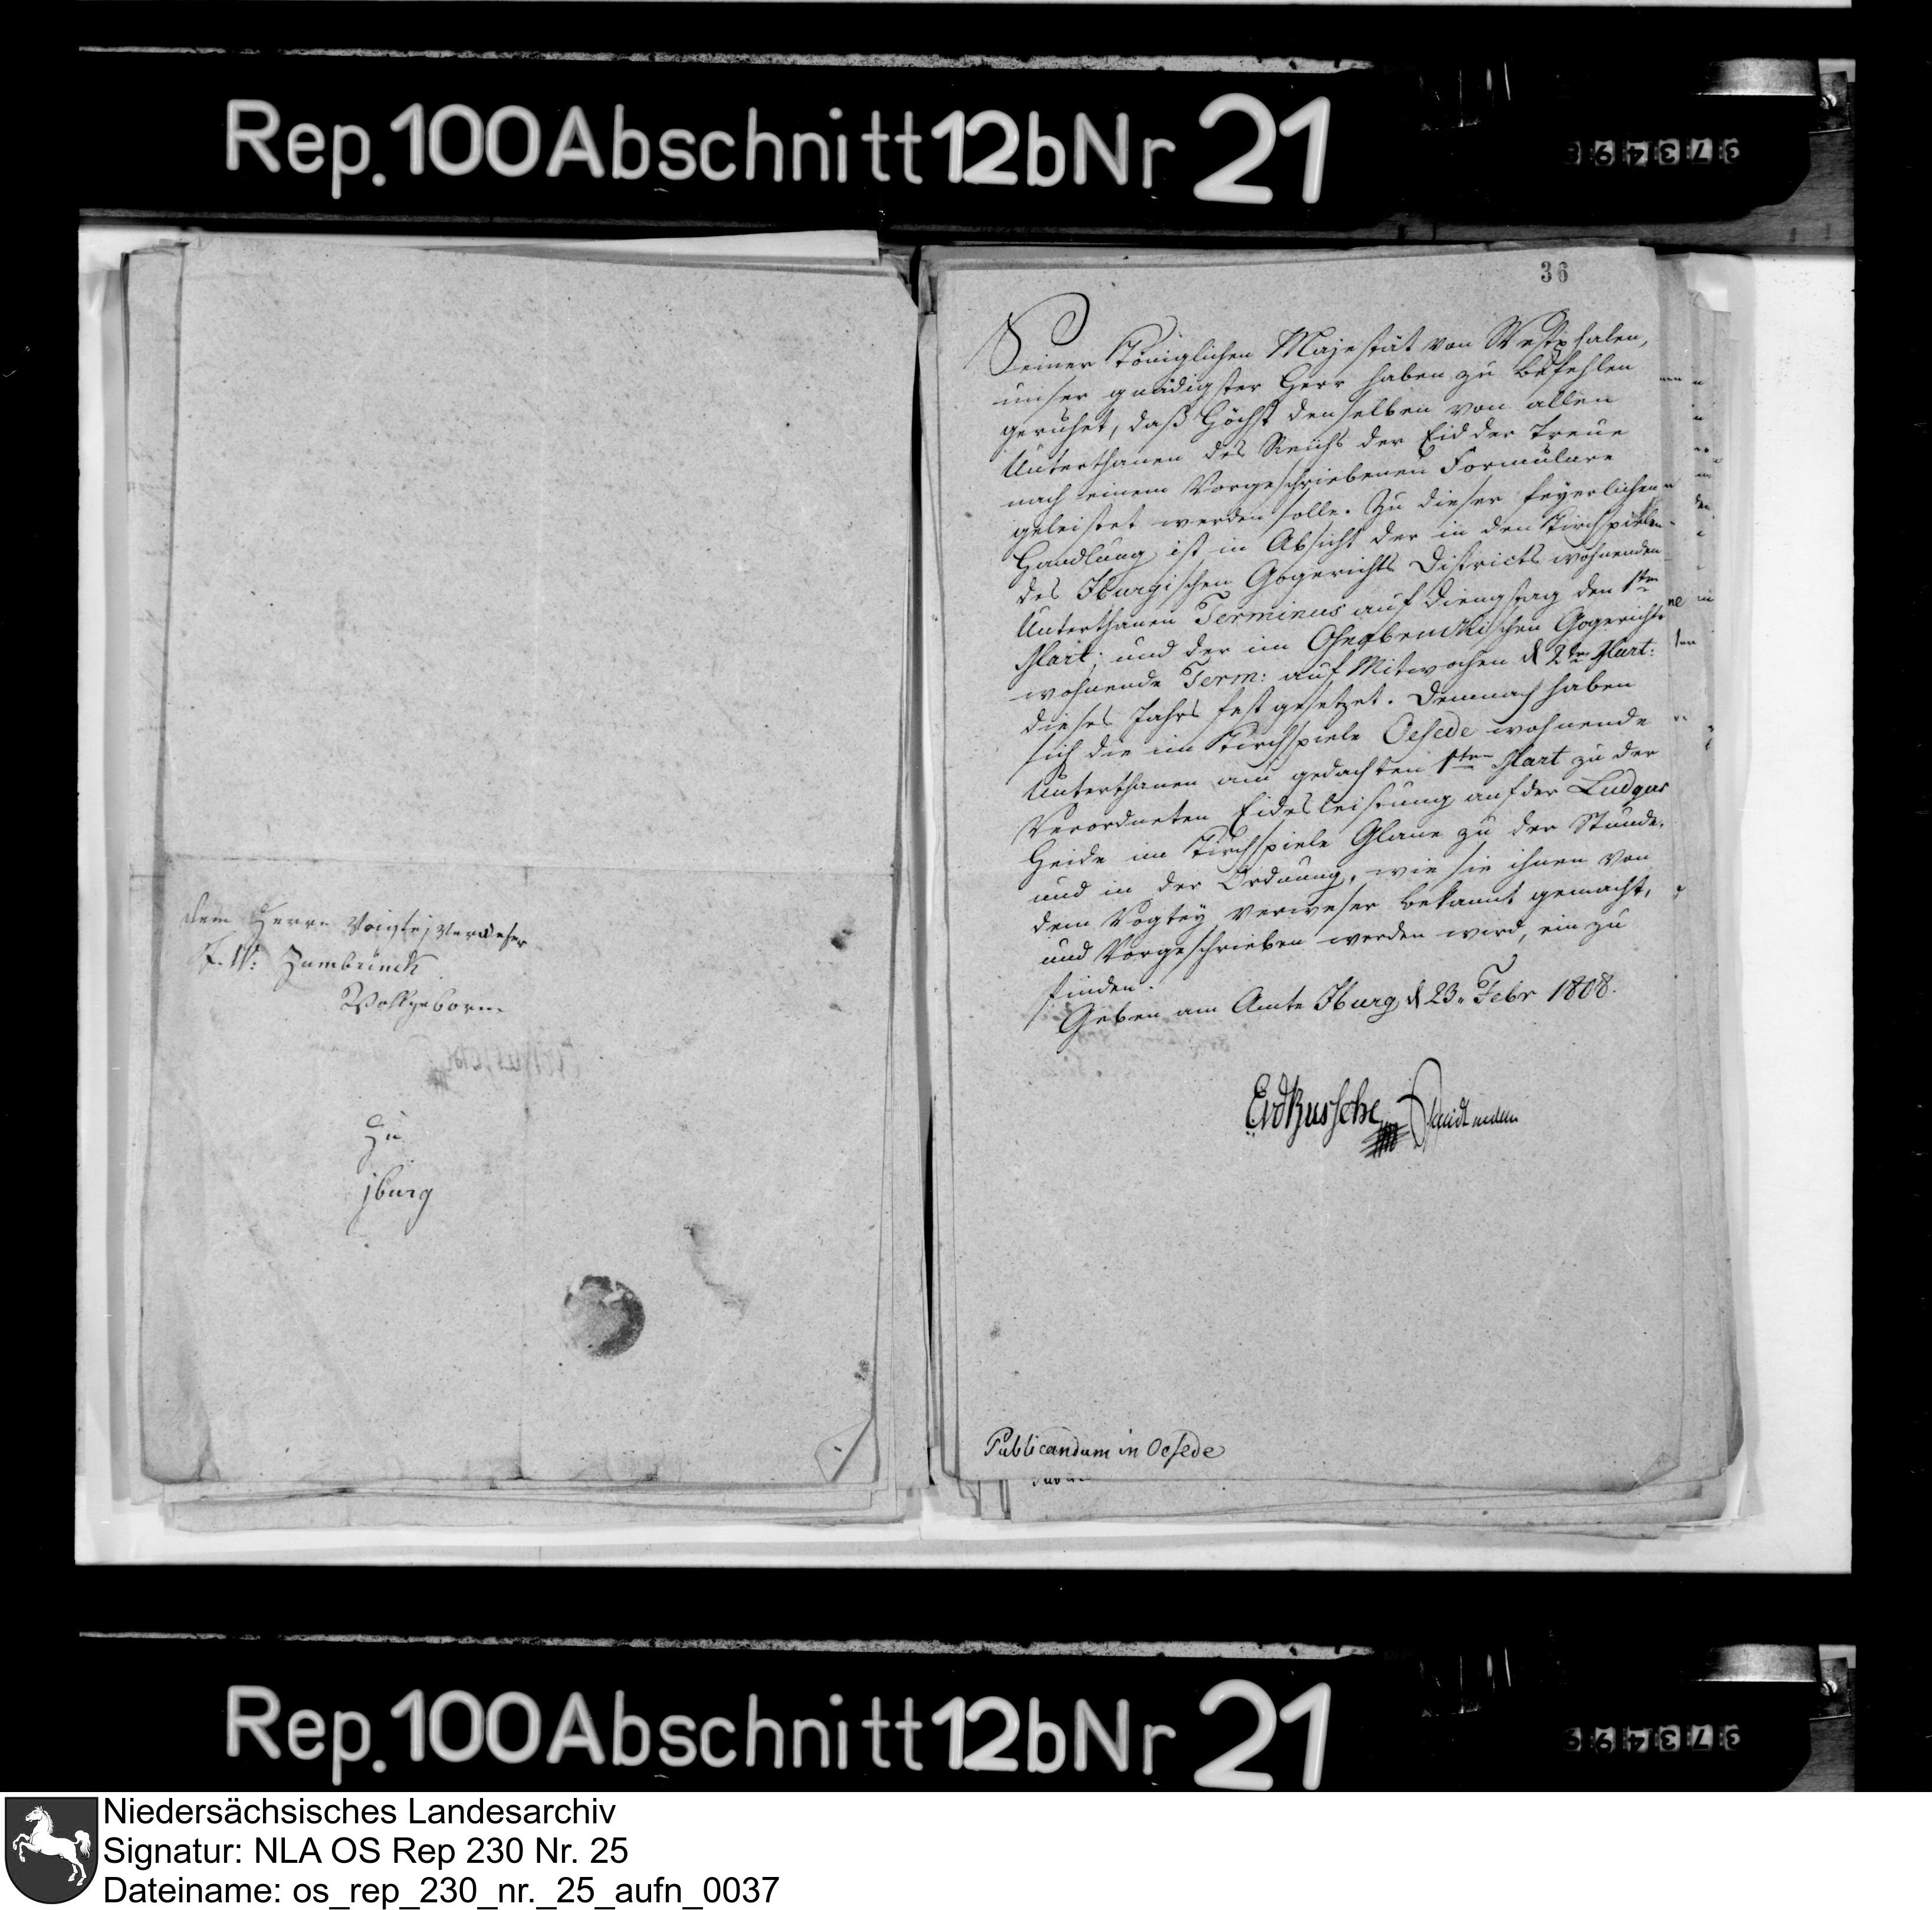 Rep. 100 Abschnitt 12b Nr 21
dem Herrn Voigtej Verweser
Zumbrinck
Wollgeborn
Zu
jburg
36
Seiner Königlichen Majestät von Westphalen,
unser gnädigster Herr haben zu befehlen
geruhet, daß Höchst denselben von allen
Unterthanen des Reichs der Eid der Treue
nach einem Vorgeschriebenen Formulare
geleistet werden solle. Zu dieser feyerlichen
Handlung ist in Absicht der in den Kirchspielen
des Iburgischen Gogerichts Districts wohnenden
Unterthanen Terminus auf Diengstag den 1ten
Mart; und der im Osnabruckischen Gogericht
wohnende Term: auf Mitwochen d 2ten Mart:
dieses Jahrs fest gesetzet. Demnach haben
sich die im Kirchspiele Oesede wohnende
Unterthanen am gedachten 1ten Mart zu der
Verordneten Eidesleistung auf der Ludgar
Heide im Kirchspiele Glane zu der Stunde,
und in der Ordnung, wie sie ihnen von
dem Vogtey Verweser bekannt gemacht,
und Vorgeschrieben werden wird, ein zu
finden.
Geben am Amte Iburg d 23. Febr 1808.
EvdBussche
Publicandum in Oesede
Rep. 100 Abschnitt 12b Nr 21
Niedersächsisches Landesarchiv
Signatur: NLA OS Rep 230 Nr. 25
Dateiname: os_rep_230_nr._25_aufn_0037